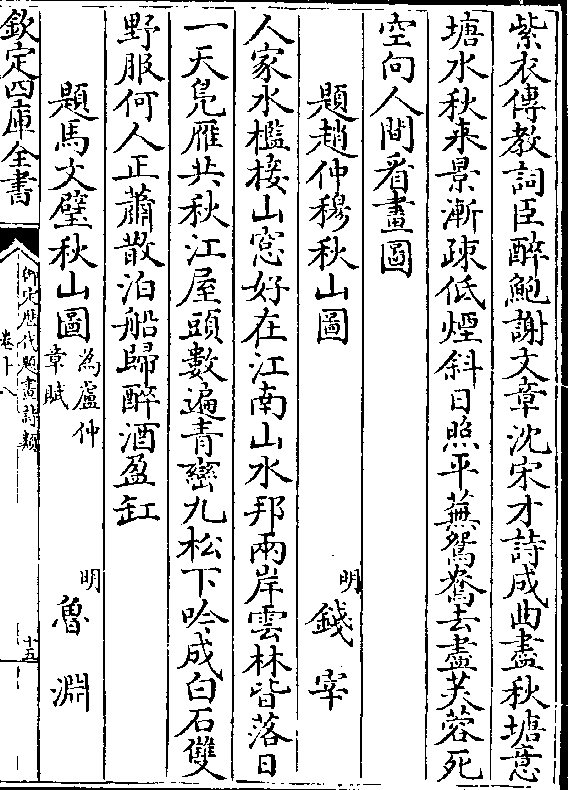 紫衣傳教詞臣醉鮑謝文章沈宋才詩成曲盡秋塘意
塘水秋来景漸疎低煙斜日照平蕪鴛鴦去盡芙蓉死
空向人間看畫圖
題趙仲穆秋山圖 明 錢宰
人家水檻接山窓好在江南山水邦兩岸雲林皆落日
一天鳧雁共秋江屋頭數遍青巒九松下吟成白石雙
野服何人正蕭散泊船歸醉酒盈缸
題馬文璧秋山圖 為盧仲章賦 明 魯淵
欽定四庫全書 御定歴代題畫詩類 卷十八 十五